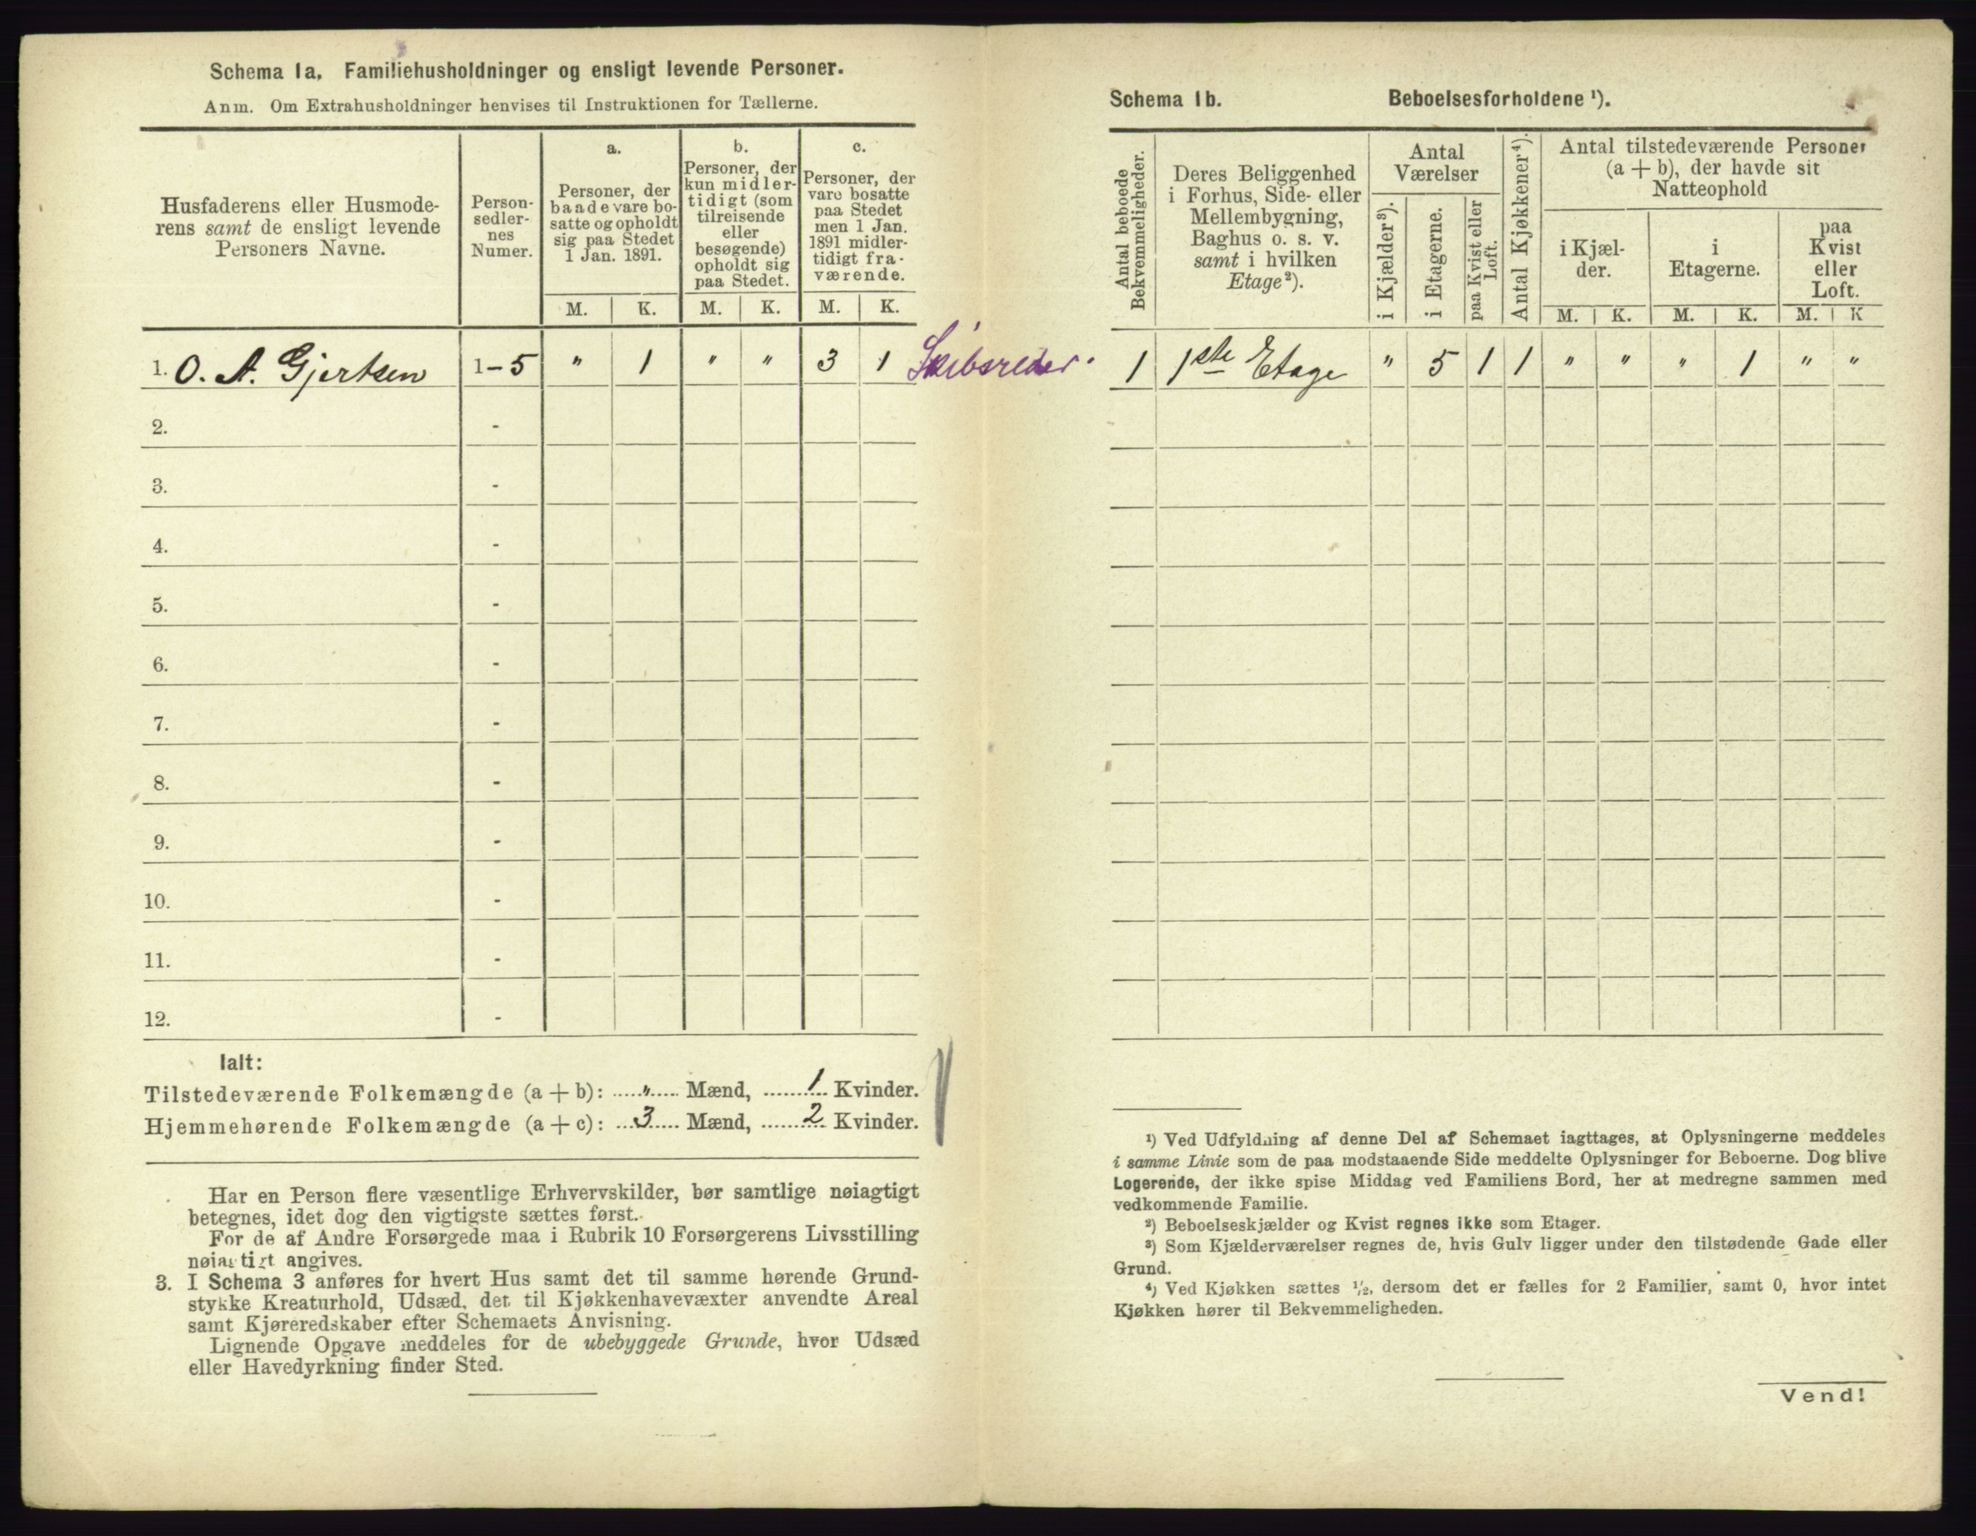 Schema 1a. Familiehusholdninger og ensligt levende Personer.
Anm. Om Extrahusholdninger henvises til Instruktionen for Tællerne.
Husfaderens eller Husmode-
rens samt de ensligt levende
Personers Navne.
Person-
sedler-
nes
Numer.
a.
Personer, der
baade vare bo-
satte og opholdt
sig paa Stedet
1 Jan. 1891.
b.
Personer, der
kun midler-
tidigt (som
tilreisende
eller
besøgende)
opholdt sig
paa Stedet.
c.
Personer, der
vare bosatte
paa Stedet
men 1 Jan.
1891 midler-
tidigt fra-
værende.
M. K. M. K. M. K.
1. O. A. Gjertsen 1-5 " 1 " " 3 1 Skibsreder.
2. -
3. -
4. -
5. -
6. -
7. -
8. -
9. -
10. -
11. -
12. -
Ialt:
Tilstedeværende Folkemængde (a + b): " Mænd, 1 Kvinder.
Hjemmehørende Folkemængde (a + c): 3 Mænd, 2 Kvinder.
Har en Person flere væsentlige Erhvervskilder, bør samtlige nøiagtigt
betegnes, idet dog den vigtigste sættes først.
For de af Andre Forsørgede maa i Rubrik 10 Forsørgerens Livsstilling
nøiagtigt angives.
3. I Schema 3 anføres for hvert Hus samt det til samme hørende Grund-
stykke Kreaturhold, Udsæd, det til Kjøkkenhavevæxter anvendte Areal
samt Kjøreredskaber efter Schemaets Anvisning.
Lignende Opgave meddeles for de ubebyggede Grunde, hvor Udsæd
eller Havedyrkning finder Sted.
Schema 1b. Beboelsesforholdene ¹).
Antal beboede
Bekvemmeligheder.
Deres Beliggenhed
i Forhus, Side- eller
Mellembygning,
Baghus o. s. v.
samt i hvilken
Etage²).
Antal
Værelser
i Kjælder³).
i Etagerne.
paa Kvist eller
Loft.
Antal Kjøkkener⁴).
Antal tilstedeværende Personer
(a + b), der havde sit
Natteophold
i Kjæl-
der.
i
Etagerne.
paa
Kvist
eller
Loft.
M. K. M. K. M. K
1 1ste Etage " 5 1 1 " " " 1 " "
¹) Ved Udfyldning af denne Del af Schemaet iagttages, at Oplysningerne meddeles
i samme Linie som de paa modstaaende Side meddelte Oplysninger for Beboerne. Dog blive
Logerende, der ikke spise Middag ved Familiens Bord, her at medregne sammen med
vedkommende Familie.
²) Beboelseskjælder og Kvist regnes ikke som Etager.
³) Som Kjælderværelser regnes de, hvis Gulv ligger under den tilstødende Gade eller
Grund.
⁴) Ved Kjøkken sættes ½, dersom det er fælles for 2 Familier, samt 0, hvor intet
Kjøkken hører til Bekvemmeligheden.
Vend!